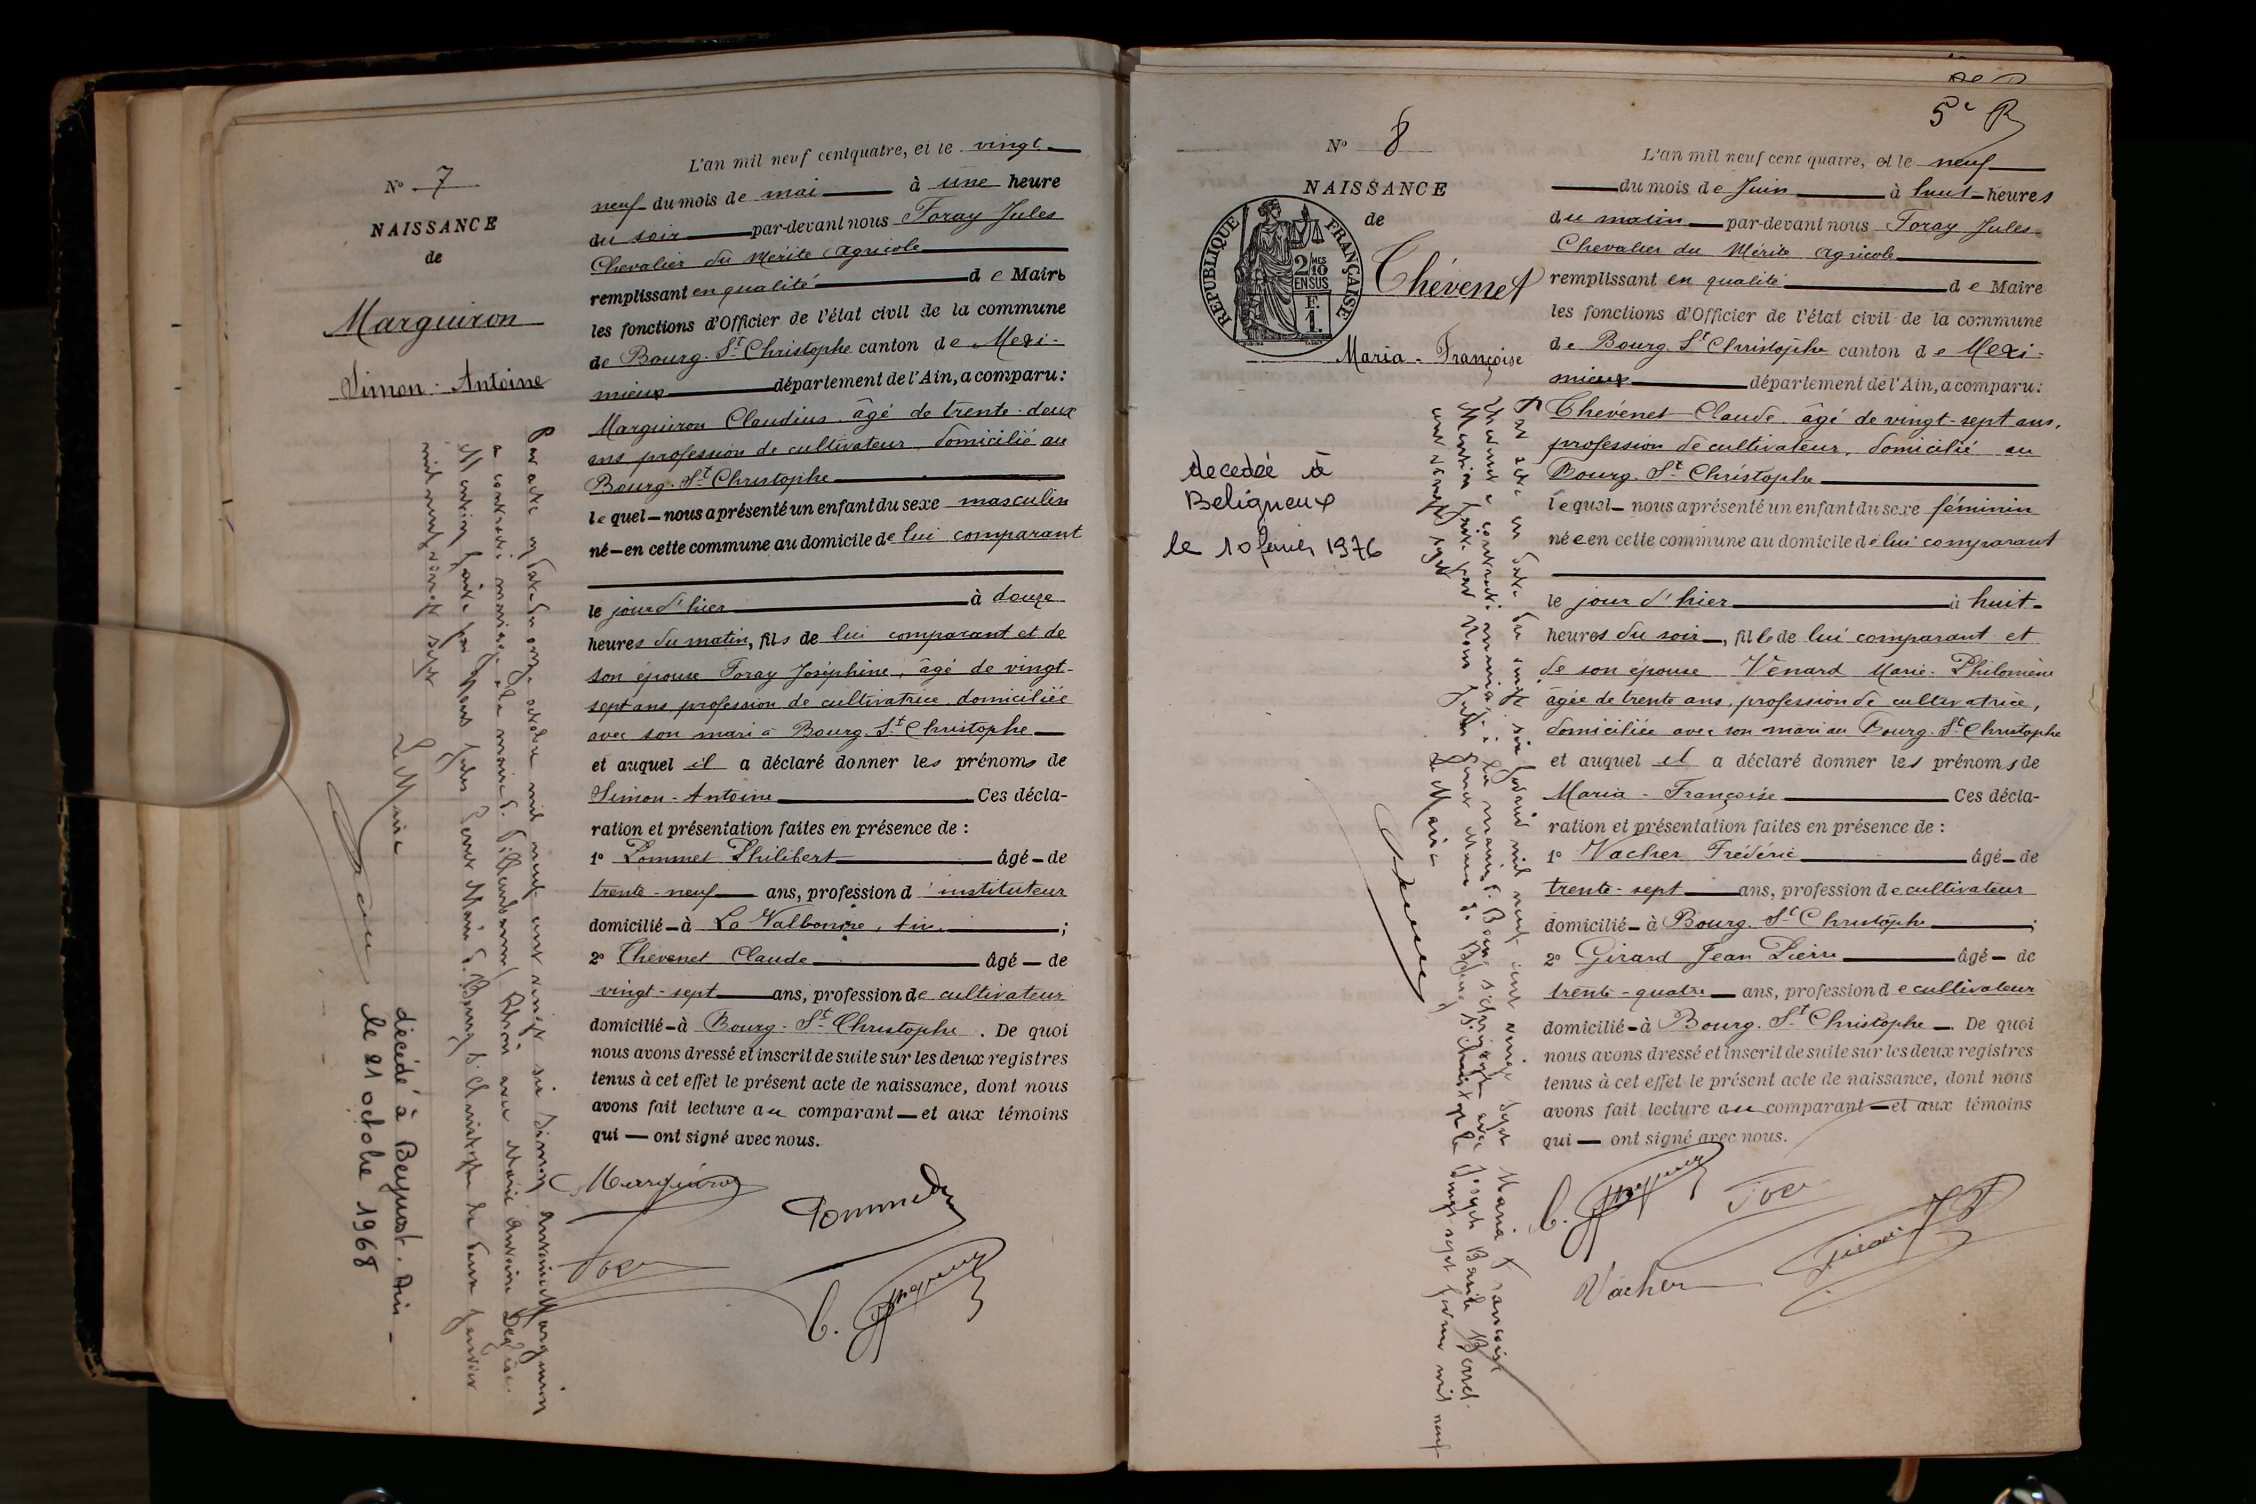 N° 7
NAISSANCE
de
Marguiron
Simon-Antoine
L'an mil neuf cent quatre, et le vingt
neuf du mois de mai à une heure
du soir par-devant nous Foray Jules
Chevalier du Mérite Agricole
remplissant en qualité de Maire
les fonctions d'Officier de l'état civil de la commune
de Bourg-St-Christophe canton de Mexi-
mieux département de l'Ain, a comparu:
Marguiron Claudius âgé de trente-deux
ans profession de cultivateur domicilié au
Bourg-St-Christophe
lequel nous a présenté un enfant du sexe masculin
né en cette commune au domicile de lui comparant
le jour d'hier à douze
heures du matin, fils de lui comparant et de
son épouse Foray Joséphine, âgé de vingt-
sept ans, profession de cultivatrice domiciliée
avec son mari à Bourg-St-Christophe
et auquel il a déclaré donner les prénoms de
Simon-Antoine Ces décla-
ration et présentation faites en présence de :
1° Pommet Philibert âgé de
trente-neuf ans, profession d'instituteur
domicilié à La Valbonne, ;
2° Chevenet Claude âgé de
vingt-sept ans, profession de cultivateur
domicilié à Bourg-St-Christophe. De quoi
nous avons dressé et inscrit de suite sur les deux registres
tenus à cet effet le présent acte de naissance, dont nous
avons fait lecture au comparant et aux témoins
qui ont signé avec nous.
Marguiron
Pommet
Foray
Par acte en date du onze octobre mil neuf cent vingt six Simon Antoine Marguiron
a contracté mariage à la mairie de Villeurbanne Rhône avec Marie Antoine
Mention faite par Nous Jules Maire de Bourg St Christophe le janvier
mil neuf vingt sept
Le Maire
décédé à Beynost. Ain -
le 21 octobre 1968
5e R
N° 8
NAISSANCE
de
RÉPUBLIQUE FRANÇAISE
2 MES 10 EN SUS
F. 1.
Chévenet
Maria-Françoise
decedée à
Beligneux
le 10 février 1976
Par acte en date du vingt six janvier mil neuf cent vingt sept Maria Françoise
Chévenet a contracté mariage à la mairie de Bourg St Christophe avec Joseph Borrel
Mention faite par Nous Jules Maire de Bourg St Christophe le vingt sept janvier mil neuf
cent vingt sept
Le Maire
L'an mil neuf cent quatre, et le neuf
du mois de Juin à huit heures
du matin par-devant nous Foray Jules
Chevalier du Mérite Agricole
remplissant en qualité de Maire
les fonctions d'Officier de l'état civil de la commune
de Bourg-St-Christophe canton de Mexi-
mieux département de l'Ain, a comparu:
Chevénet Claude âgé de vingt-sept ans,
profession de cultivateur, domicilié au
Bourg-St-Christophe
lequel nous a présenté un enfant du sexe féminin
née en cette commune au domicile de lui comparant
le jour d'hier à huit
heures du soir, fille de lui comparant et
de son épouse Vénard Marie-Philomène
âgée de trente ans, profession de cultivatrice,
domiciliée avec son mari au Bourg-St-Christophe
et auquel il a déclaré donner les prénoms de
Maria-Françoise Ces décla-
ration et présentation faites en présence de :
1° Vacher Frédéric âgé de
trente-sept ans, profession de cultivateur
domicilié à Bourg-St-Christophe ;
2° Girard Jean Pierre âgé de
trente-quatre ans, profession de cultivateur
domicilié à Bourg-St-Christophe. De quoi
nous avons dressé et inscrit de suite sur les deux registres
tenus à cet effet le présent acte de naissance, dont nous
avons fait lecture au comparant et aux témoins
qui ont signé avec nous.
Foray
Girard J P
Vacher